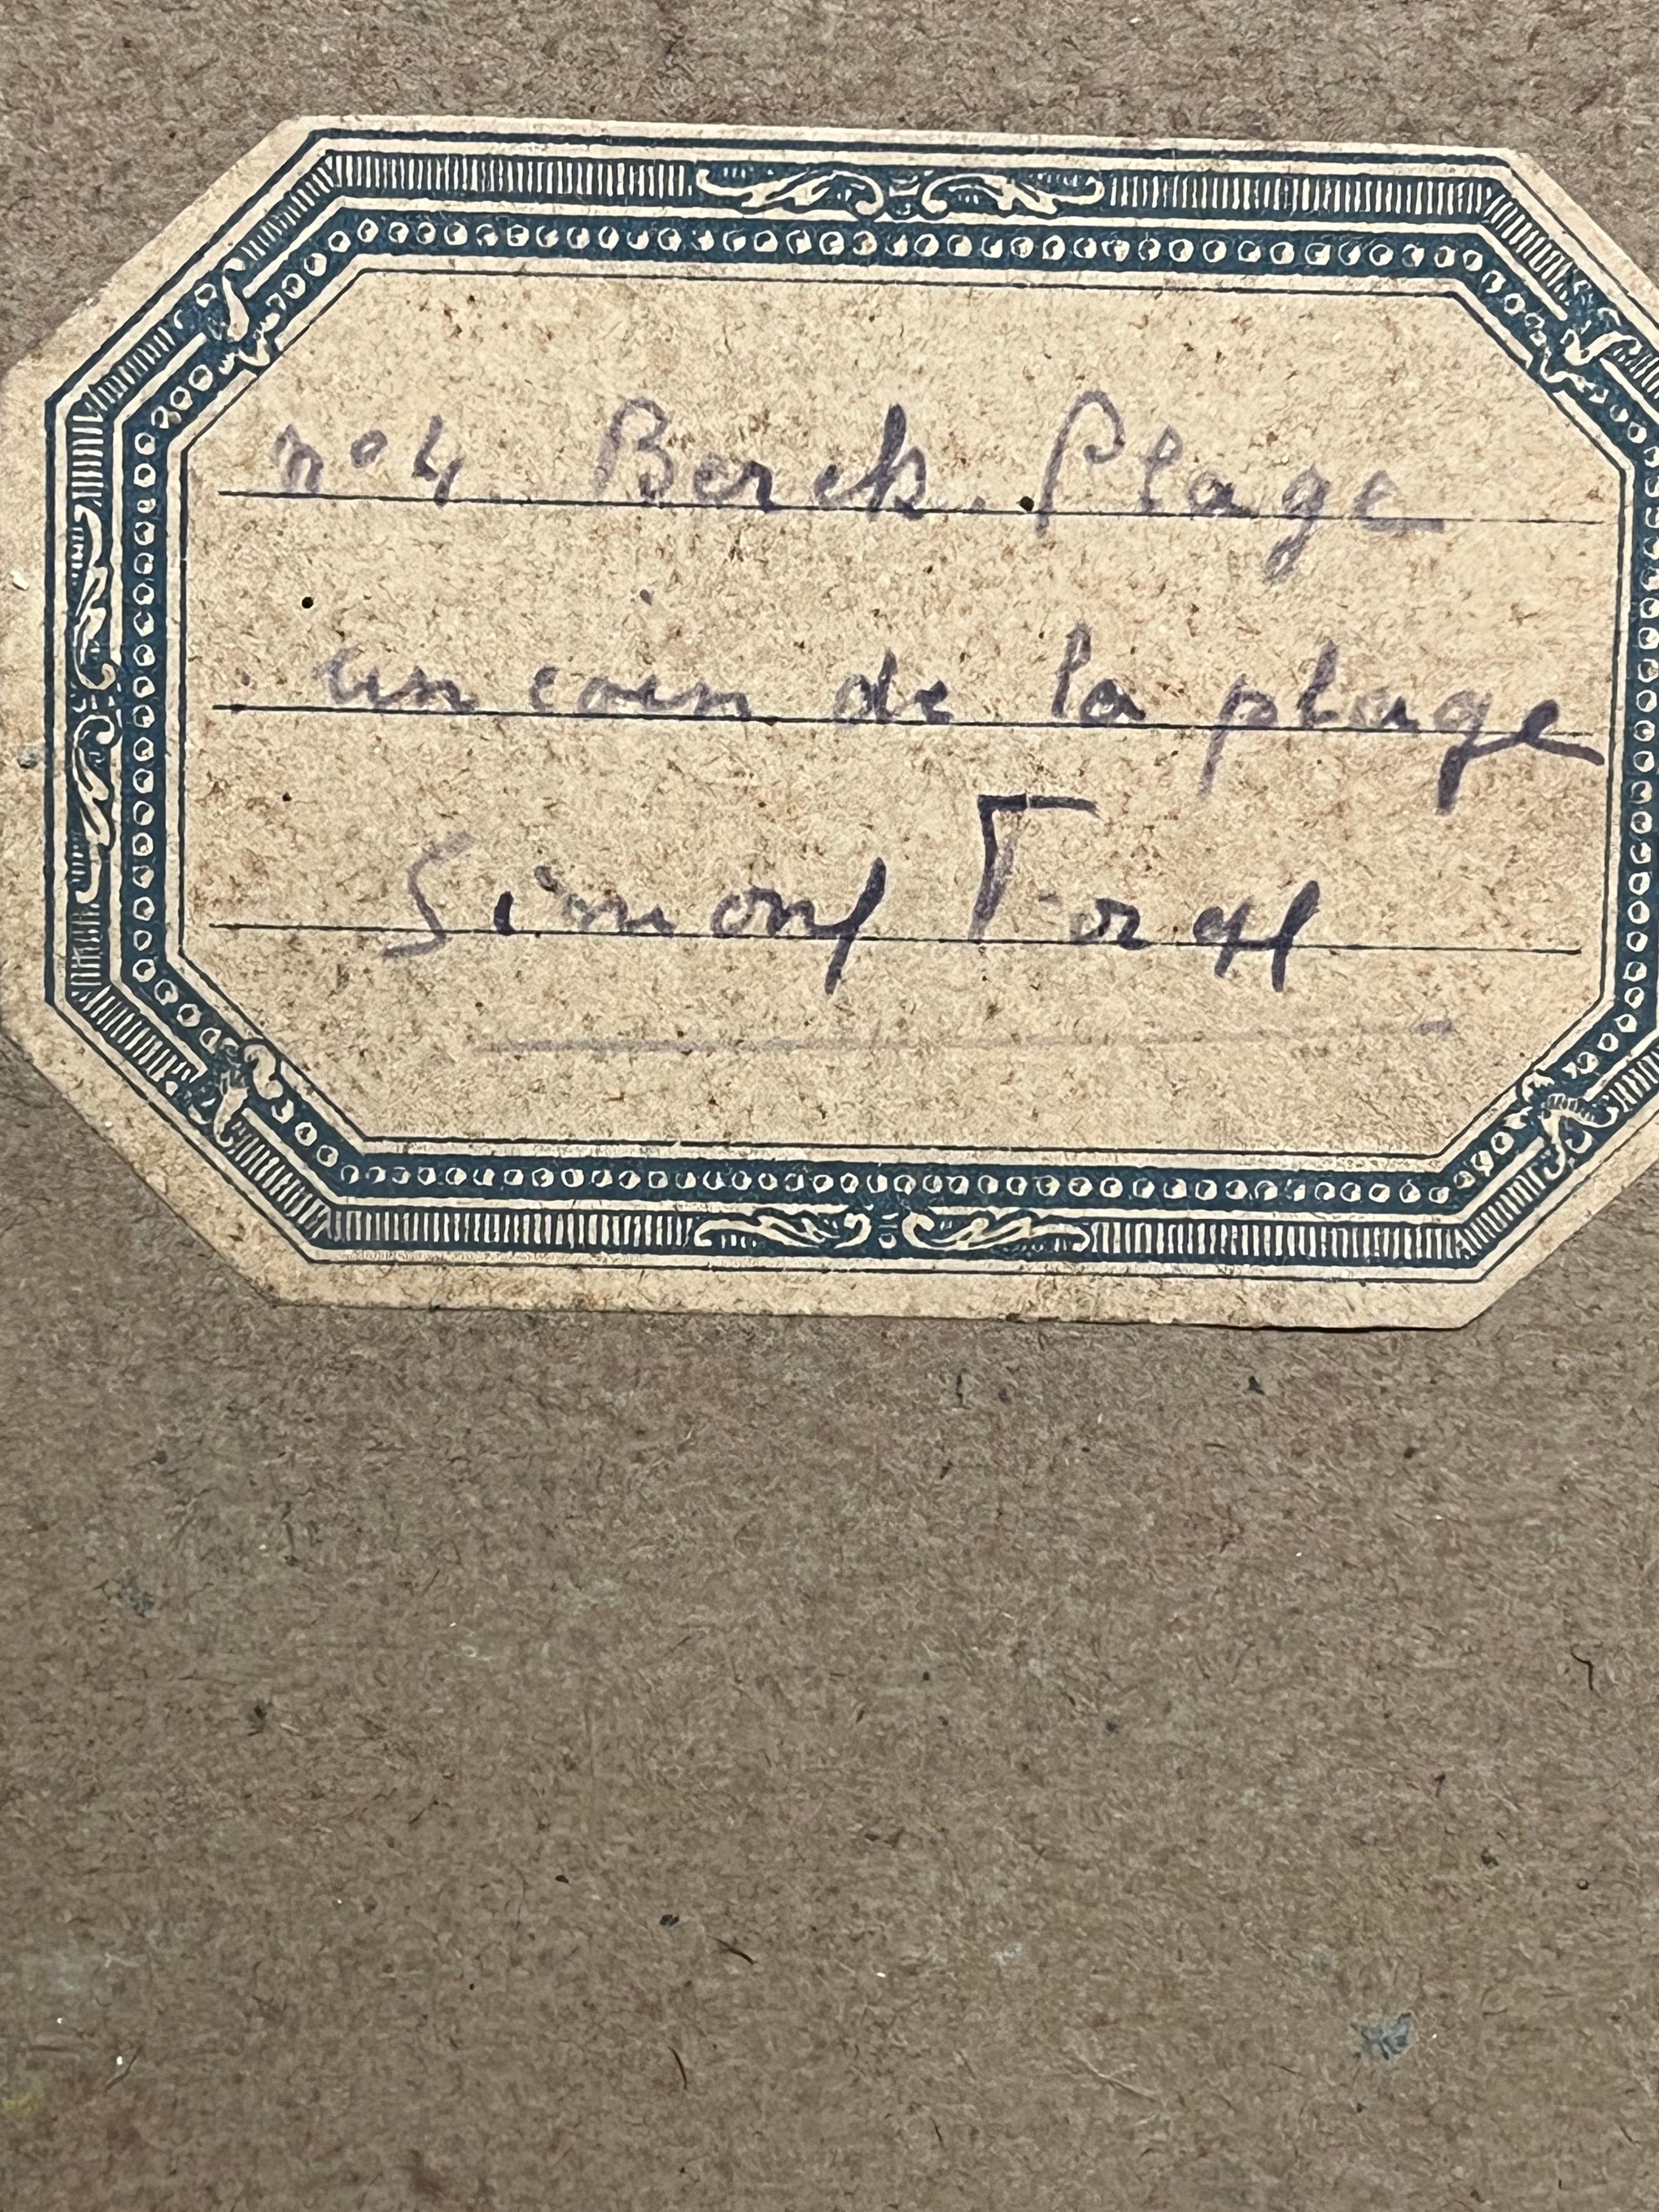 no 4. Berck. Plage
un coin de la plage
Simon